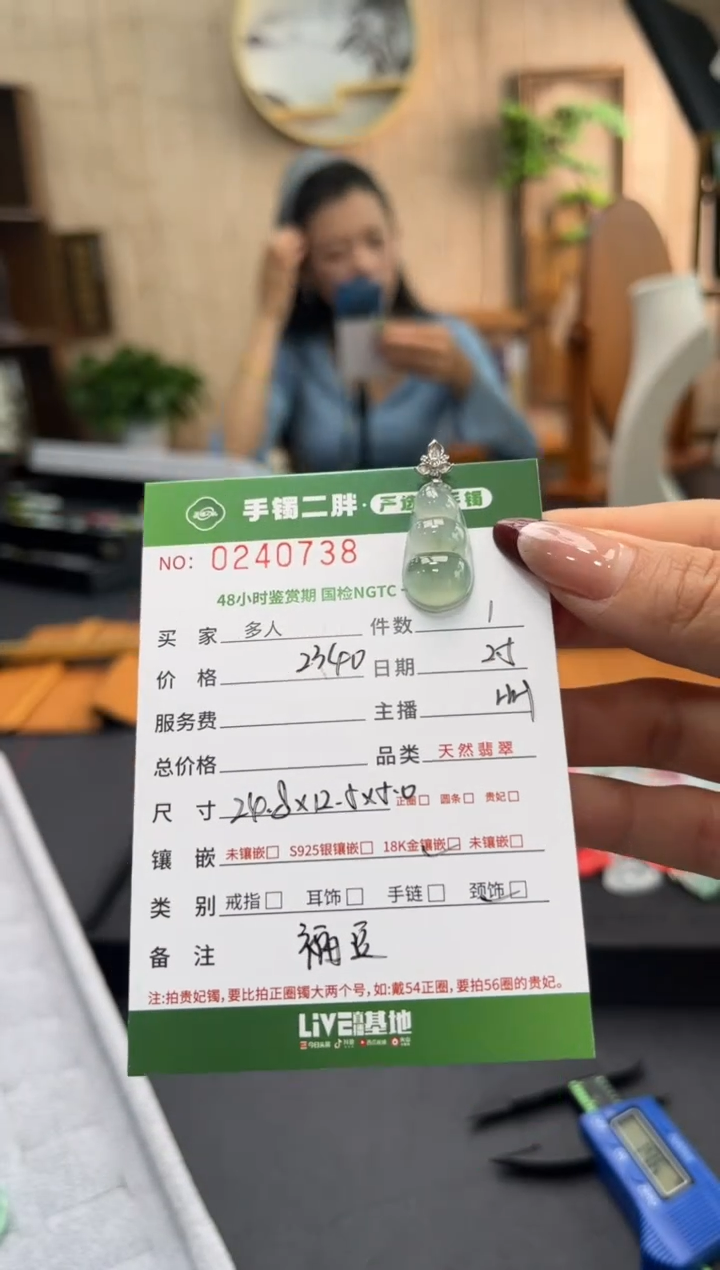 手镯二胖·严选手镯
NO: 0240738
48小时鉴赏期 国检NGTC
买家 多人 件数 1
价格 2340 日期 25
服务费 主播
总价格 品类 天然翡翠
尺寸 24.8×12.5×5.0 正圈□ 圆条□ 贵妃□
镶嵌 未镶嵌□ S925银镶嵌□ 18K金镶嵌☑ 未镶嵌□
类别 戒指□ 耳饰□ 手链□ 颈饰☑
备注 福豆
注:拍贵妃镯,要比拍正圈镯大两个号,如:戴54正圈,要拍56圈的贵妃。
LIVE直播基地
今日头条 抖音 西瓜视频